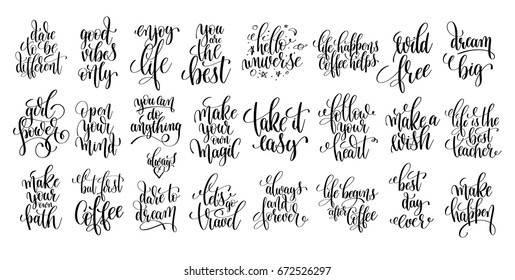 dare
to be
different
good
vibes
only
enjoy
life
you
are
the
best
hello
universe
life happens
coffee helps
wild
free
dream
big
girl
power
open
your
mind
you can
do
anything
always
make
your
own
magic
take it
easy
follow
your
heart
make a
wish
life is the
best
teacher
make
your
own
path
but first
coffee
dare to
dream
let's
go
travel
always
and
forever
life begins
after
coffee
best
day
ever
make
it
happen
www.shutterstock.com · 672526297